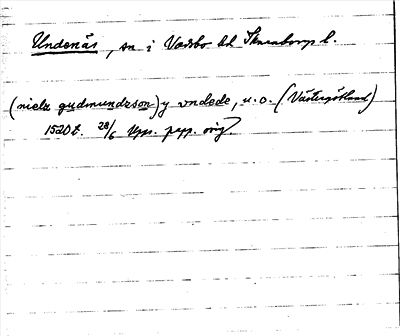 Undenäs, sn i Vadsbo hd Skaraborgs l.
(nielz gudmundzson) y vndede, u.o. (Västergötland)
1520 t. 28/6 Upps. papp. orig.